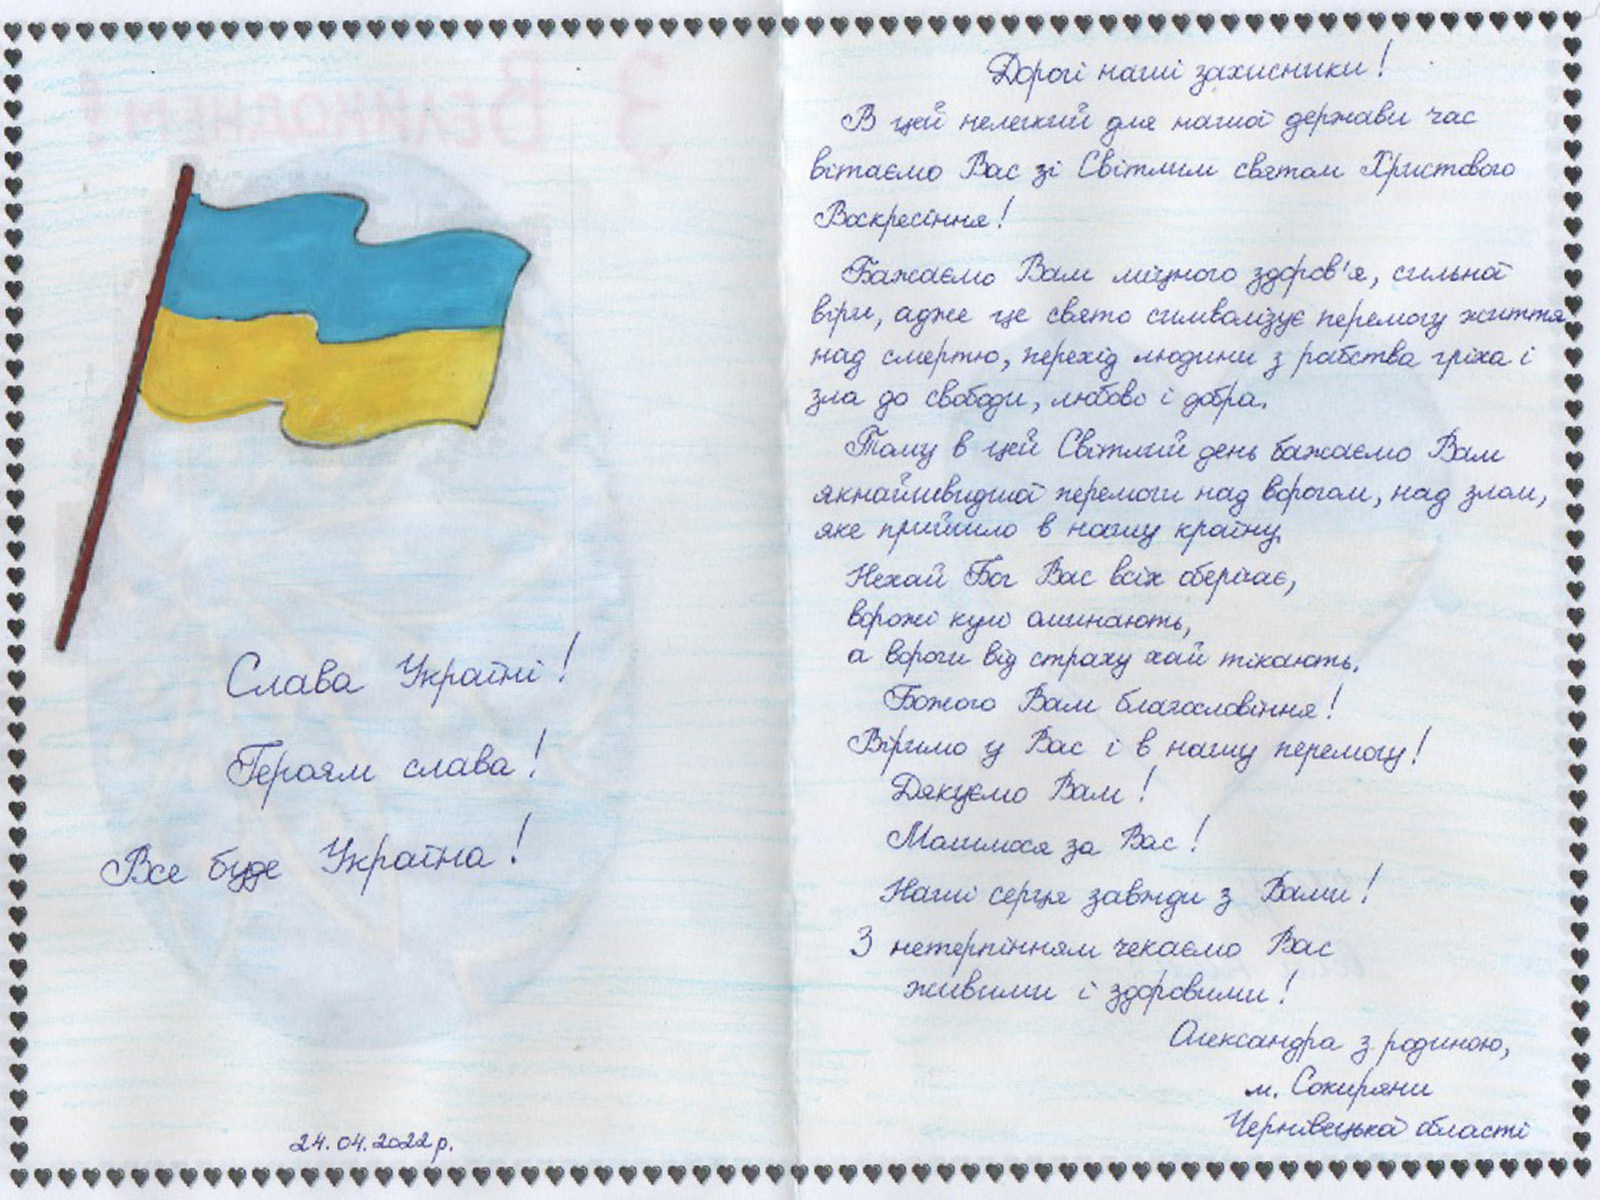 З Великоднем!
Слава Україні!
Героям слава!
Все буде Україна!
24.04.2022 р.
Дорогі наші захисники!
В цей нелегкий для нашої держави час
вітаємо Вас зі Світлим святом Христового
Воскресіння!
Бажаємо Вам міцного здоров'я, сильної
віри, адже це свято символізує перемогу життя
над смертю, перехід людини з рабства гріха і
зла до свободи, любові і добра.
Тому в цей Світлий день бажаємо Вам
якнайшвидшої перемоги над ворогом, над злом,
яке прийшло в нашу країну.
Нехай Бог Вас всіх оберігає,
ворожі кулі оминають,
а вороги від страху хай тікають.
Божого Вам благословіння!
Віримо у Вас і в нашу перемогу!
Дякуємо Вам!
Молимося за Вас!
Наші серця завжди з Вами!
З нетерпінням чекаємо Вас
живими і здоровими!
Олександра з родиною,
м. Сокиряни
Чернівецької області